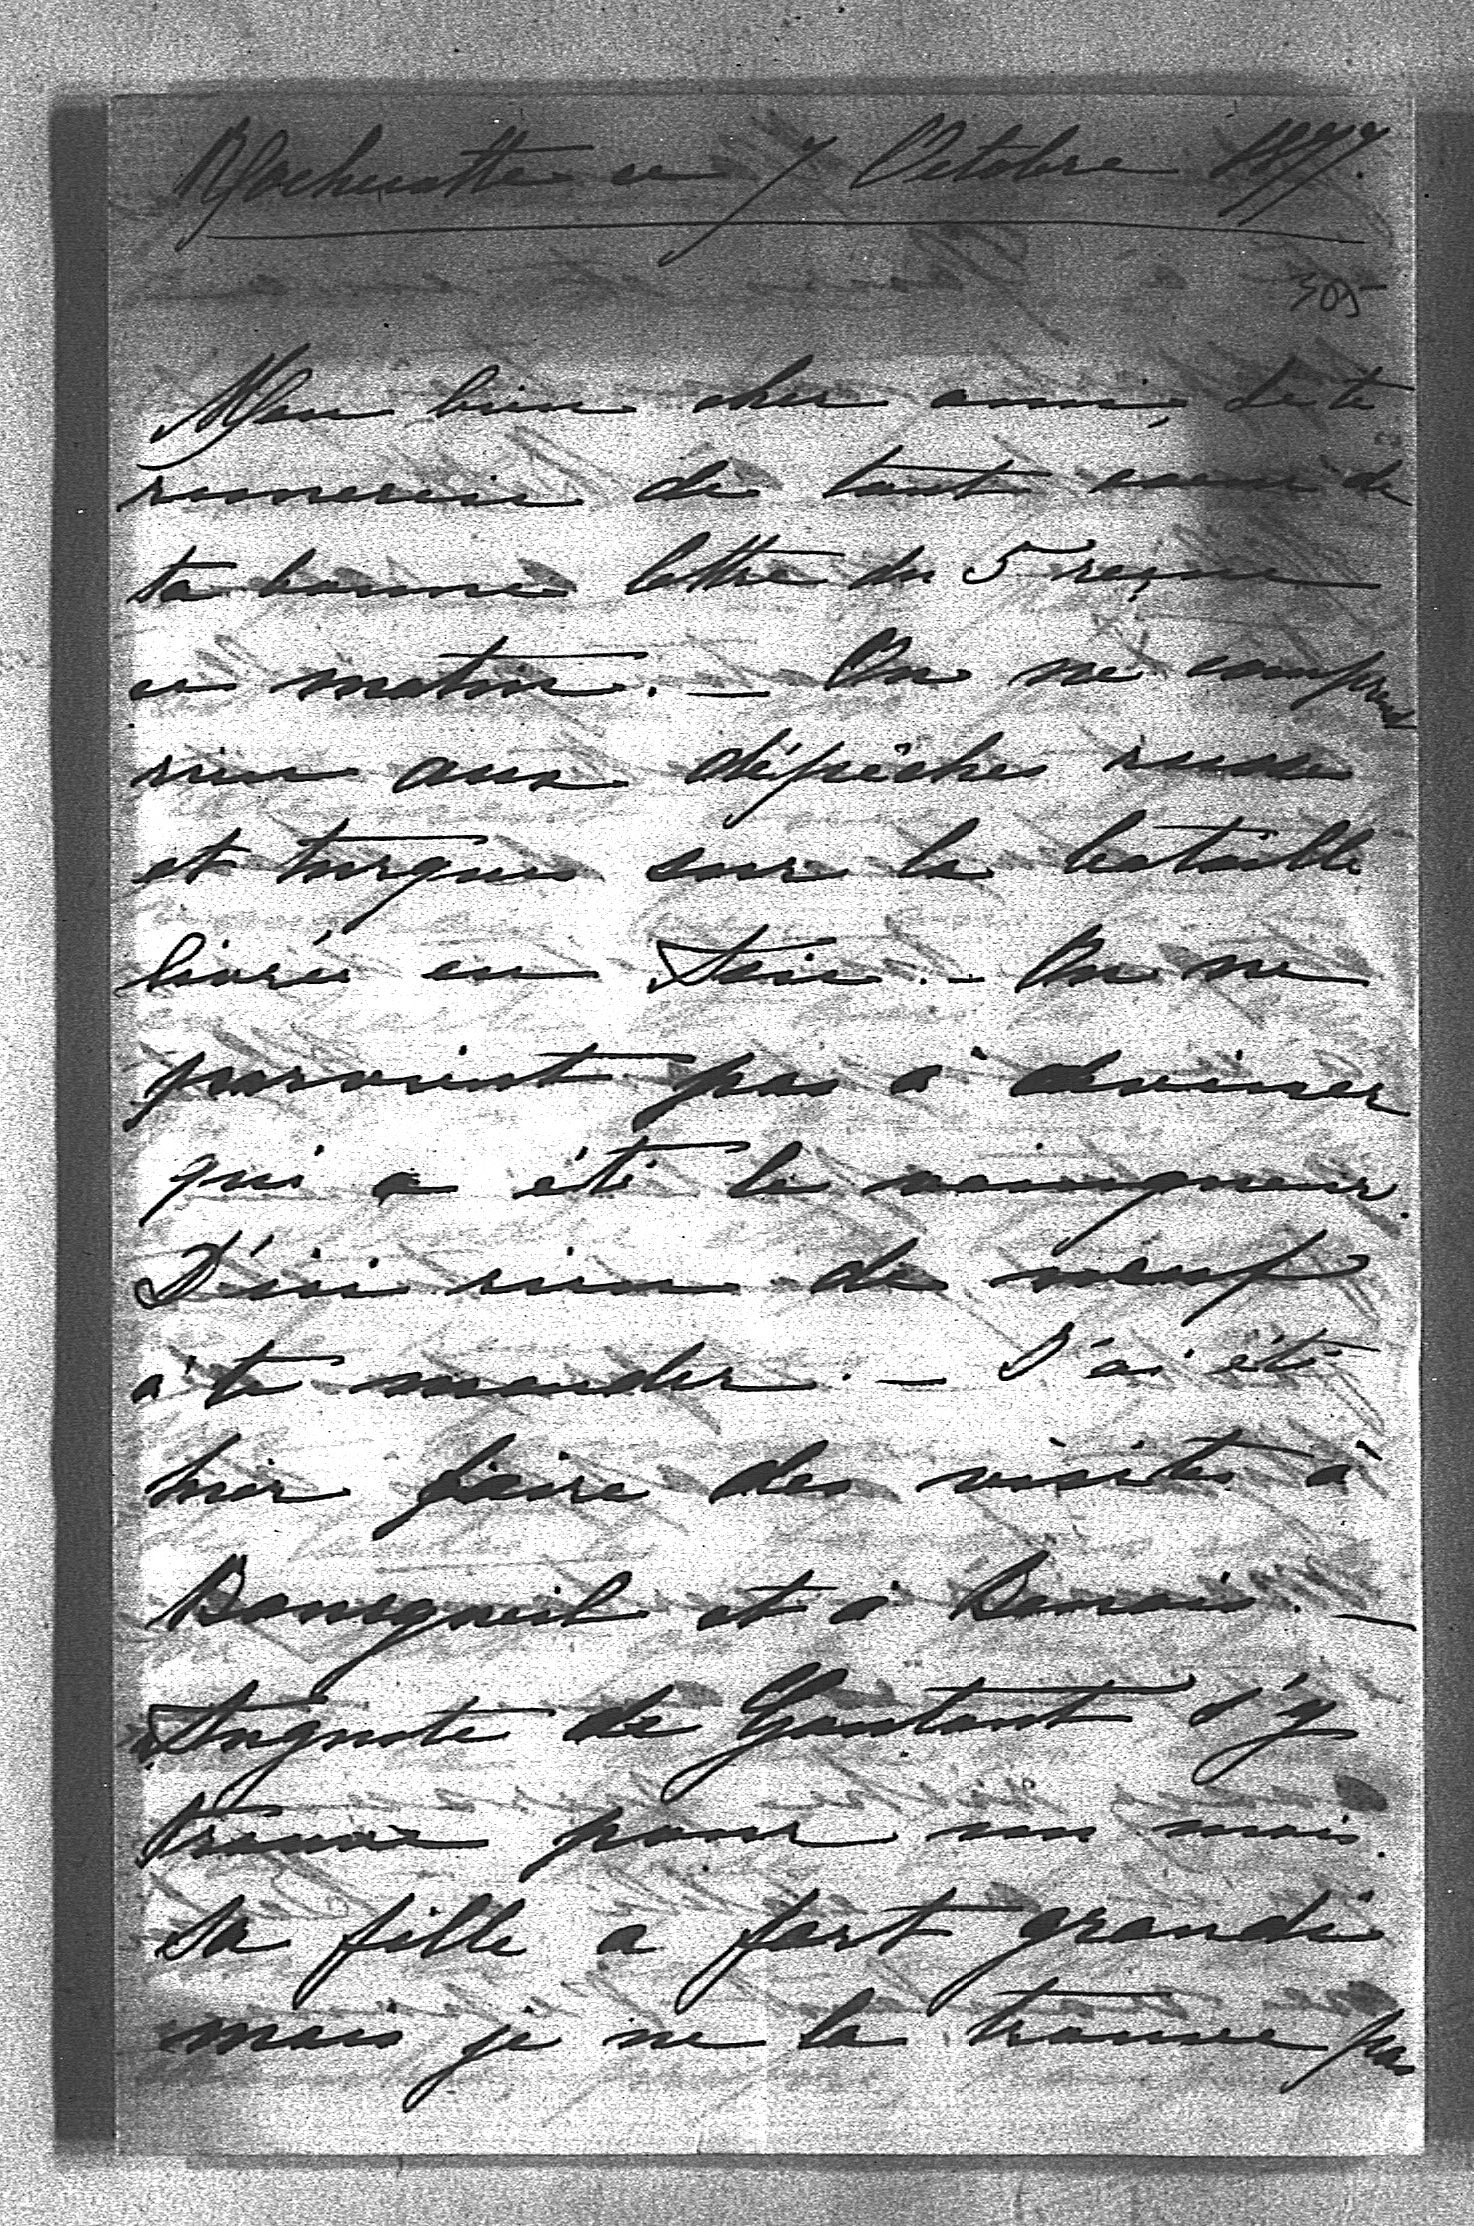 Rochecotte ce 7 Octobre 1877.
305
Mon bien cher ami, Je te
remercie de tout coeur de
ta bonne lettre du 5 reçue
ce matin. – On ne comprend
rien aux dépêches russes
et turques sur la bataille
livrée en Asie. – On ne
parvient pas à deviner
qui a été le vainqueur.
D'ici rien de neuf
à te mander. – J'ai été
hier faire des visites à
Bourgueil et à Benais. –
Auguste de Gontaut s'y
trouve pour un mois.
Sa fille a fort grandi
mais je ne la trouve pas